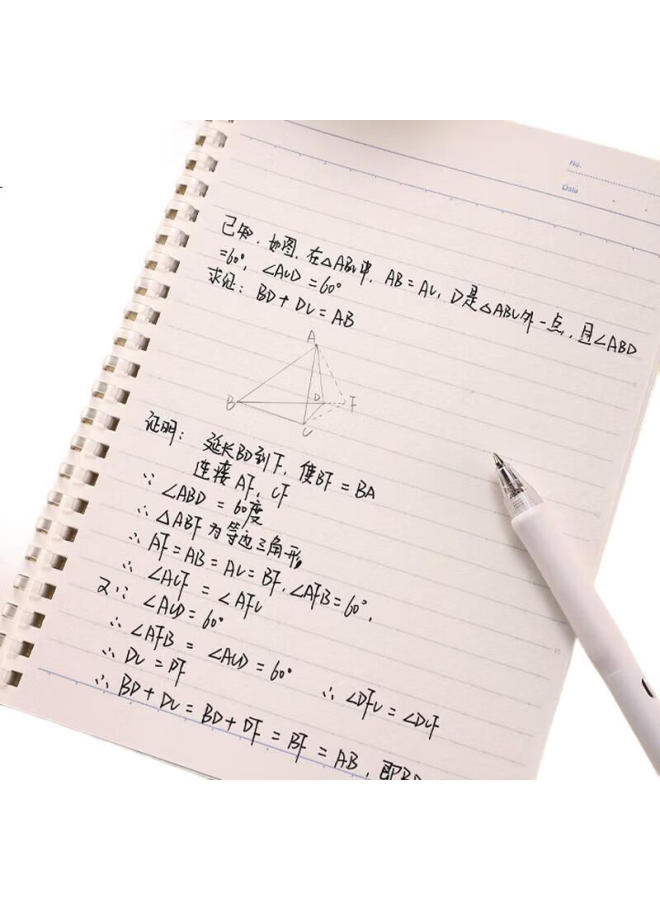 No.
Date
已知，如图，在△ABC中，AB=AC，D是△ABC外一点，且∠ABD
=60°，∠ACD=60°
求证：BD+DC=AB
A
B
D
F
C
证明：延长BD到F，使BF=BA
连接AF，CF
∵∠ABD=60度
∴△ABF为等边三角形，
∴AF=AB=AC=BF，∠AFB=60°，
∴∠ACF=∠AFC
又∵∠ACD=60°
∴∠AFB=∠ACD=60° ∴∠DFC=∠DCF
∴DC=DF
∴BD+DC=BD+DF=BF=AB，即BD